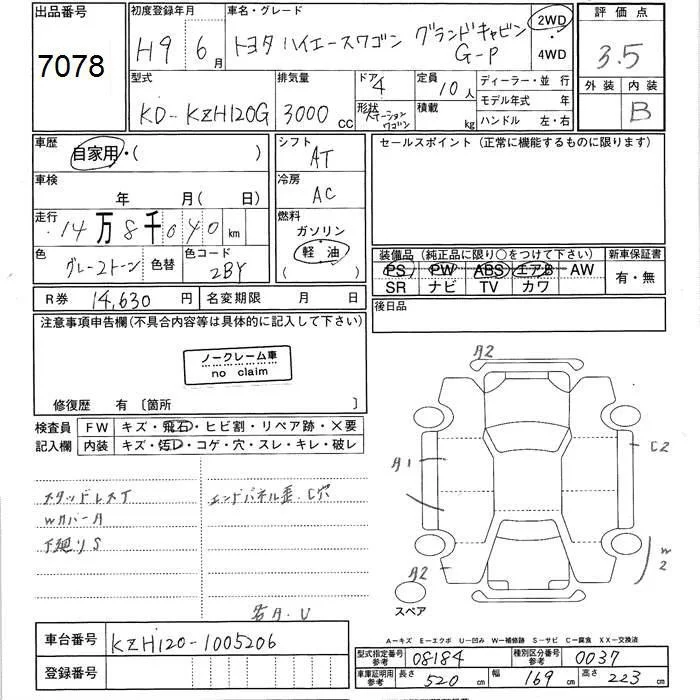 出品番号
7078
初度登録年月
H9 6月
車名・グレード
トヨタ ハイエースワゴン グランドキャビン
G-P
2WD
・
4WD
評価点
3.5
外装 内装
B
型式
KD-KZH120G
排気量
3000 cc
ドア
4
形状
ステーションワゴン
定員
10人
積載
kg
ディーラー・並行
モデル年式 年
ハンドル 左・右
車歴
自家用・( )
シフト
AT
セールスポイント(正常に機能するものに限ります)
車検
年 月(日)
冷房
AC
走行
14万8千040 km
燃料
ガソリン
軽油
( )
色
グレー2トーン
色替
色コード
2BY
装備品(純正品に限り○をつけて下さい)
PS PW ABS エアB AW
SR ナビ TV カワ
新車保証書
有・無
R券 14,630円
名変期限 月 日
後日品
注意事項申告欄(不具合内容等は具体的に記入して下さい)
ノークレーム車
no claim
修復歴 有 〔箇所 〕
検査員
記入欄
FW キズ・飛石・ヒビ割・リペア跡・×要
内装 キズ・汚レ・コゲ・穴・スレ・キレ・破レ
スタッドレスT
Wカバー A
下廻りS
エンドパネル歪.C穴
各A.U
A2
A1
C2
A2
W2
スペア
A-キズ E-エクボ U-凹み W-補修跡 S-サビ C-腐食 XX-交換済
車台番号 KZH120-1005206
登録番号
型式指定番号
参考
08184
種別区分番号
参考
0037
車庫証明用
参考
長さ 520 cm 幅 169 cm 高さ 223 cm